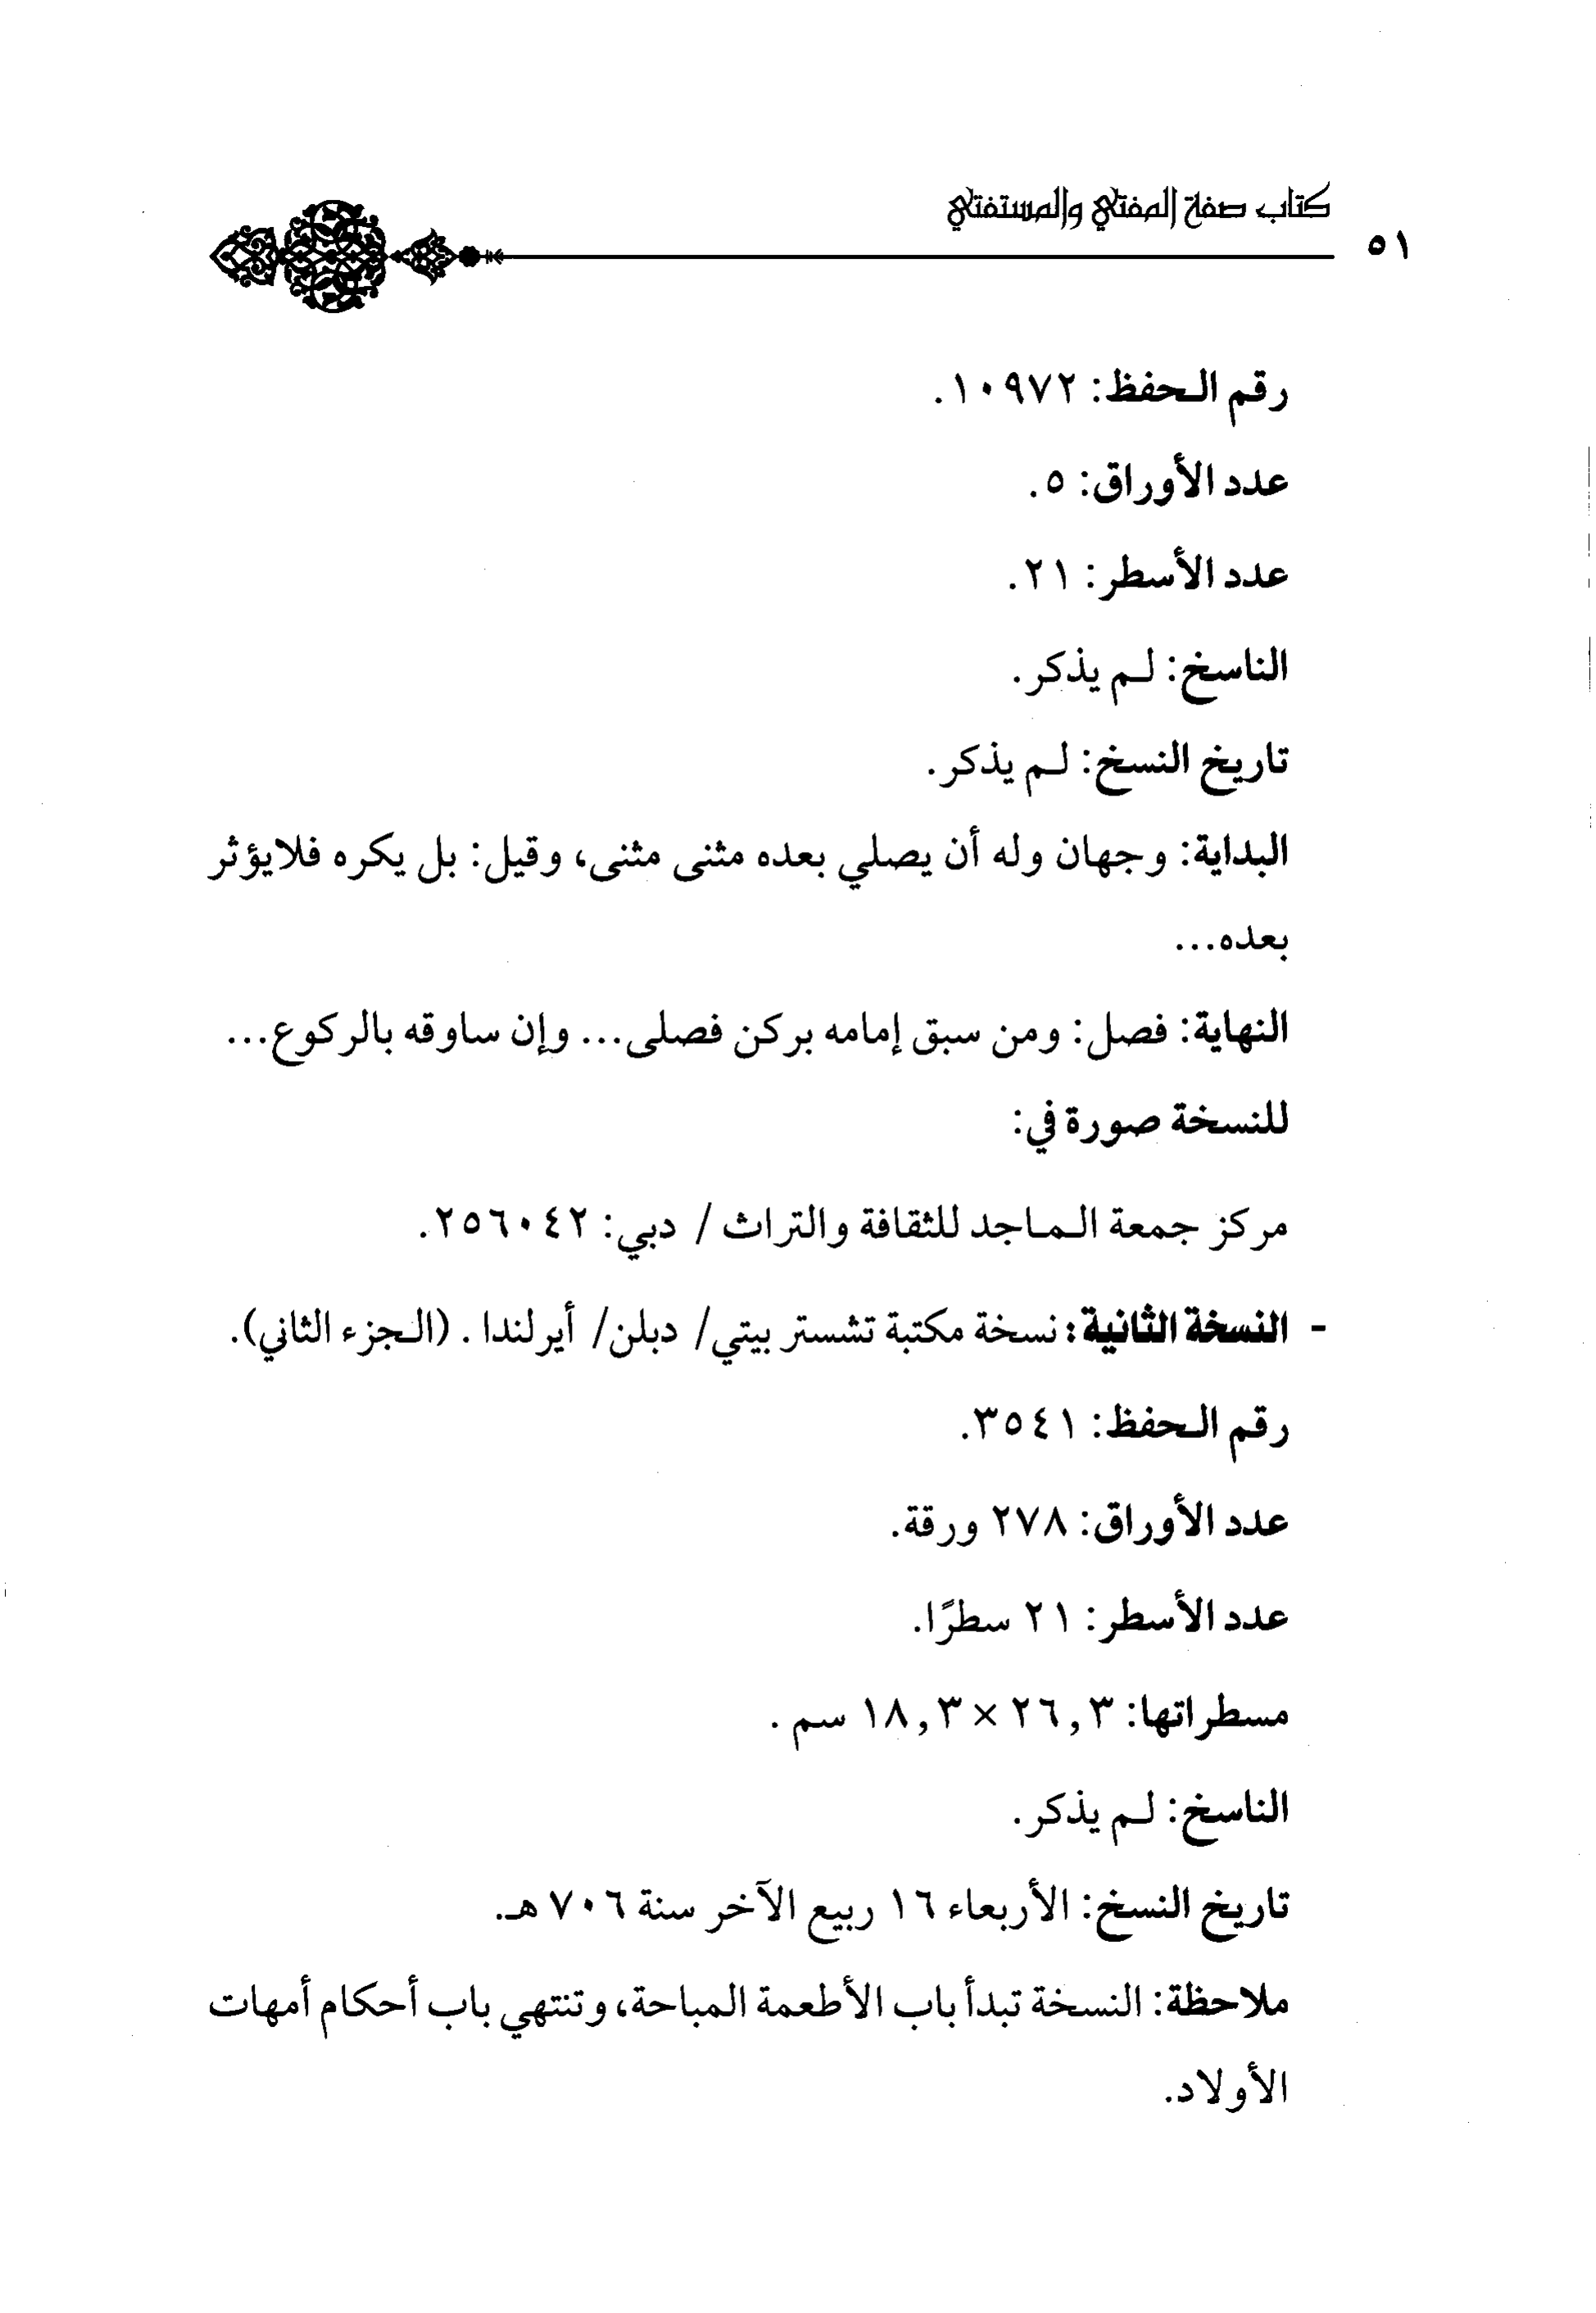 كتاب صفة المفتي والمستفتي
٥١
رقم الحفظ: ١٠٩٧٢.
عدد الأوراق: ٥.
عدد الأسطر: ٢١.
الناسخ: لم يذكر.
تاريخ النسخ: لم يذكر.
البداية: وجهان وله أن يصلي بعده مثنى مثنى، وقيل: بل يكره فلايؤثر
بعده...
النهاية: فصل: ومن سبق إمامه بركن فصلى... وإن ساوقه بالركوع...
للنسخة صورة في:
مركز جمعة الماجد للثقافة والتراث / دبي: ٢٥٦٠٤٢.
- النسخة الثانية: نسخة مكتبة تشستر بيتي/ دبلن/ أيرلندا . (الجزء الثاني).
رقم الحفظ: ٣٥٤١.
عدد الأوراق: ٢٧٨ ورقة.
عدد الأسطر: ٢١ سطرًا.
مسطراتها: ٢٦,٣ × ١٨,٣ سم .
الناسخ: لم يذكر.
تاريخ النسخ: الأربعاء ١٦ ربيع الآخر سنة ٧٠٦ هـ.
ملاحظة: النسخة تبدأ باب الأطعمة المباحة، وتنتهي باب أحكام أمهات
الأولاد.